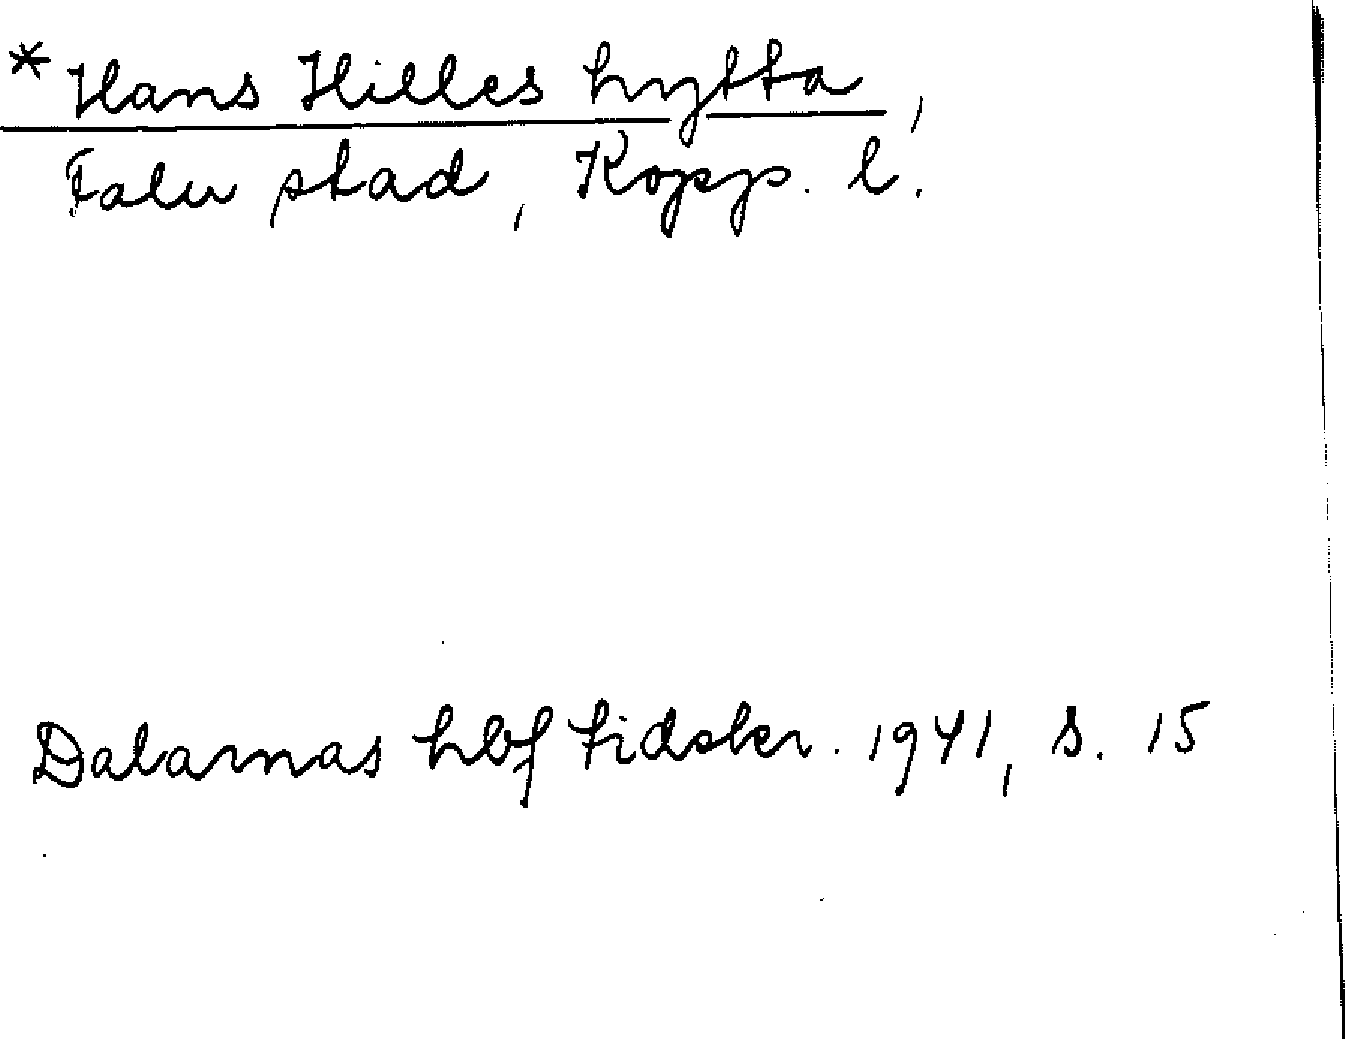 *Hans Hilles hytta,
Falu stad, Kopp. l.
Dalarnas hbf tidskr. 1941, s. 15